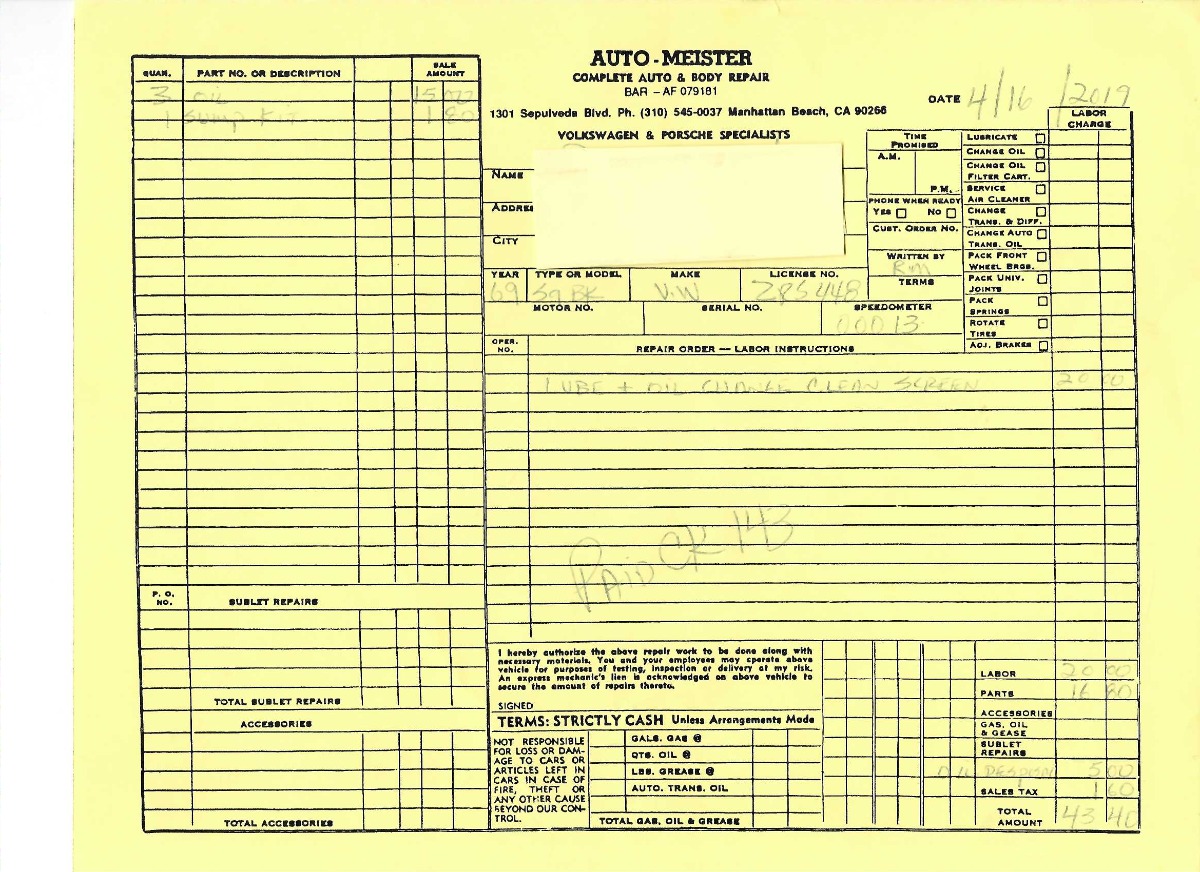 AUTO-MEISTER
COMPLETE AUTO & BODY REPAIR
BAR - AF 079181
1301 Sepulveda Blvd. Ph. (310) 545-0037 Manhattan Beach, CA 90266
VOLKSWAGEN & PORSCHE SPECIALISTS
DATE 4/16/2019
QUAN. PART NO. OR DESCRIPTION SALE AMOUNT
3 OIL 15 00
1 Sump Kit 1 80
P. O. NO. SUBLET REPAIRS
TOTAL SUBLET REPAIRS
ACCESSORIES
TOTAL ACCESSORIES
NAME
ADDRE
CITY
TIME PROMISED
A.M.
P.M.
PHONE WHEN READY
YES NO
CUST. ORDER NO.
WRITTEN BY
Rm
TERMS
YEAR TYPE OR MODEL MAKE LICENSE NO.
69 Sq BK V.W ZPS 448
MOTOR NO. SERIAL NO. SPEEDOMETER
00013
LABOR CHARGE
LUBRICATE
CHANGE OIL
CHANGE OIL
FILTER CART.
SERVICE
AIR CLEANER
CHANGE
TRANS. & DIFF.
CHANGE AUTO
TRANS. OIL
PACK FRONT
WHEEL BRGS.
PACK UNIV.
JOINTS
PACK
SPRINGS
ROTATE
TIRES
ADJ. BRAKES
OPER. NO. REPAIR ORDER — LABOR INSTRUCTIONS
LUBE + OIL CHANGE CLEAN SCREEN 20 00
PAID CK 143
I hereby authorize the above repair work to be done along with
necessary materials. You and your employees may operate above
vehicle for purposes of testing, inspection or delivery at my risk.
An express mechanic's lien is acknowledged on above vehicle to
secure the amount of repairs thereto.
SIGNED
TERMS: STRICTLY CASH Unless Arrangements Made
NOT RESPONSIBLE
FOR LOSS OR DAM-
AGE TO CARS OR
ARTICLES LEFT IN
CARS IN CASE OF
FIRE, THEFT OR
ANY OTHER CAUSE
BEYOND OUR CON-
TROL.
GALS. GAS @
QTS. OIL @
LBS. GREASE @
AUTO. TRANS. OIL
TOTAL GAS, OIL & GREASE
LABOR 20 00
PARTS 16 80
ACCESSORIES
GAS, OIL
& GEASE
SUBLET
REPAIRS
OIL DESPOSAL 5 00
SALES TAX 1 60
TOTAL AMOUNT 43 40